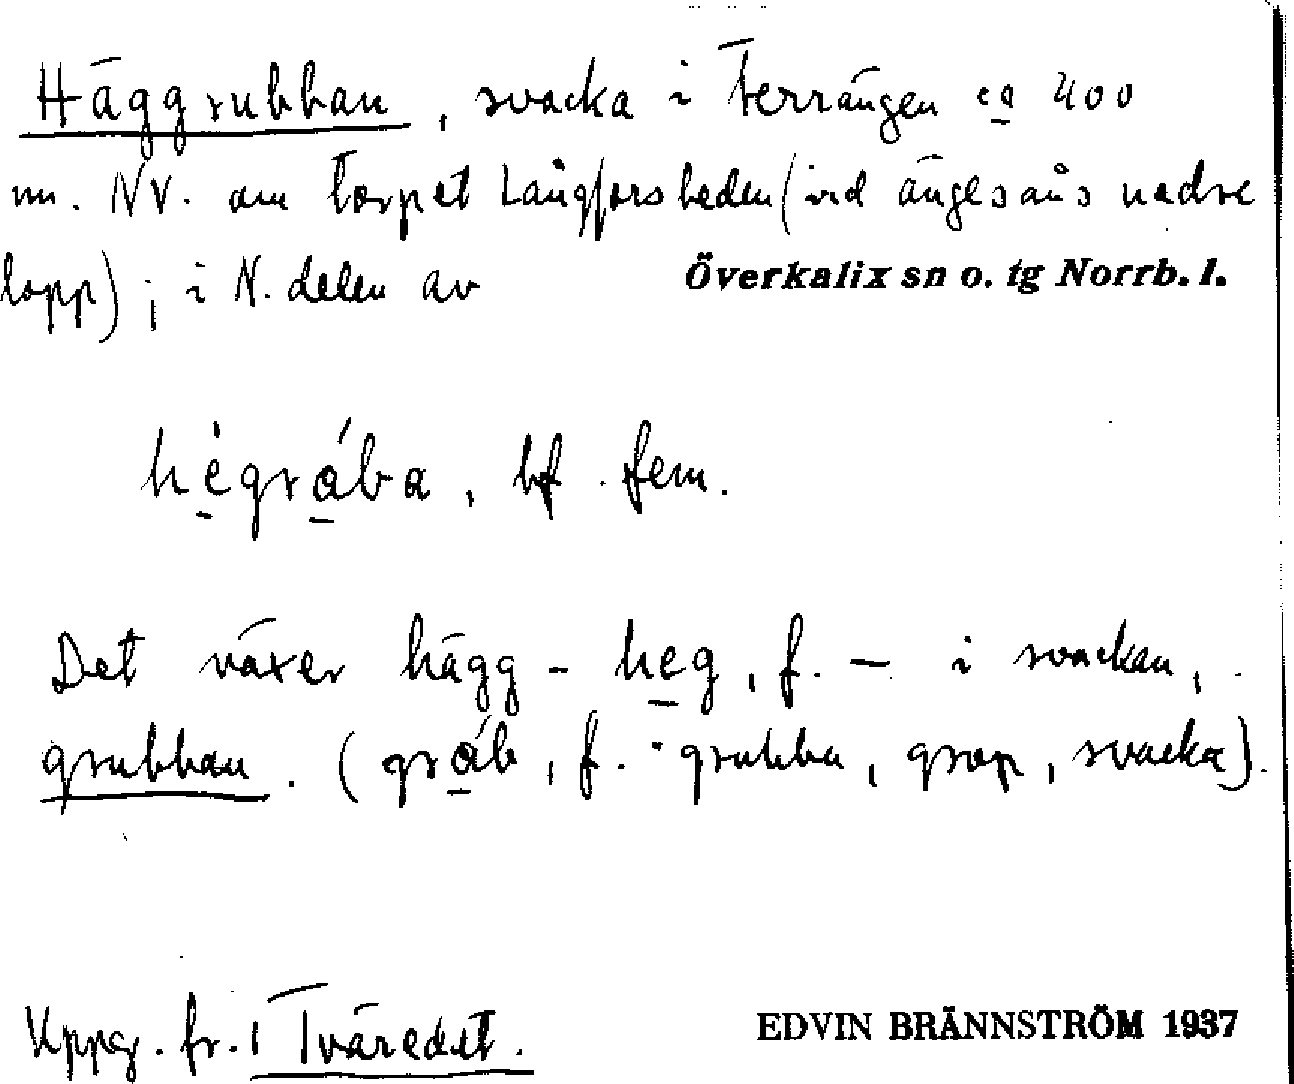 Häggrubban, svacka i terrängen ca 400
m. NV. om torpet Långforsheden (vid ängesåns nedre
lopp); i N. delen av Överkalix sn o. tg Norrb. l.
hègrába, bf. fem.
Det växer hägg - heg, f. - i svackan,
grubban. (gráb, f. grubba, grop, svacka).
Uppg. fr. i Tväredet.
EDVIN BRÄNNSTRÖM 1937